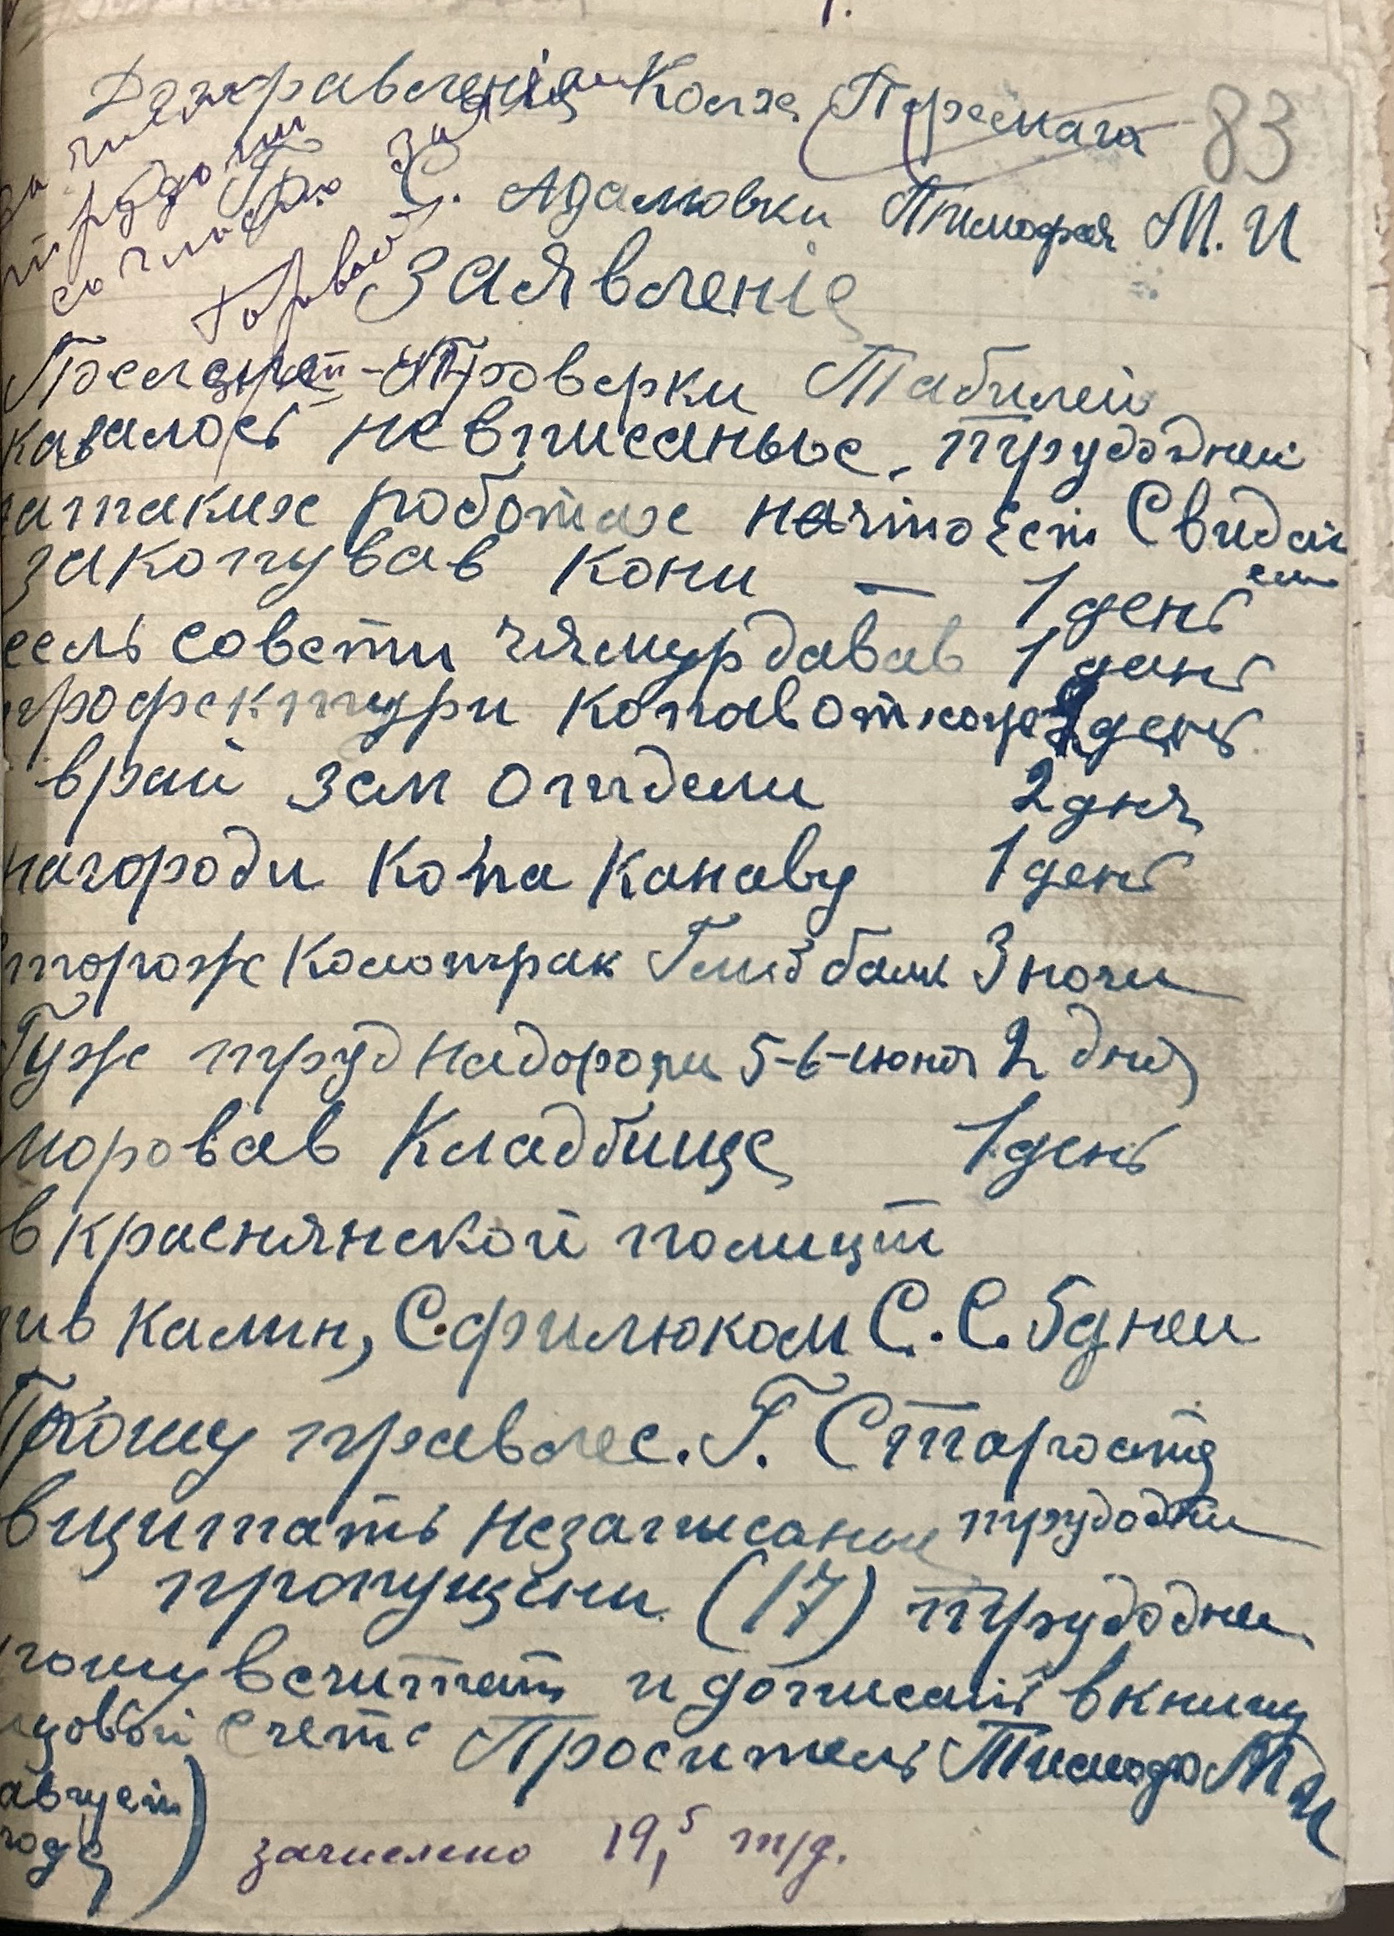 До правленія Колх. Перемага 83
С. Адамовки Тимофея М. И
Заявленіе
После Проверки Табилей
казалось невписаные трудодней
на таких роботах начто Ест Свидет
ели
закопував кони — 1 день
сель совети чямурдавав 1 день
профектури копав отхоже 1 день
врай зем отдели 2 дня
нагороди копа канаву 1 день
сторож колотрак Гліз бали 3 ночи
Гуж труд на дороги 5-6-июня 2 дня
моровав Кладбище 1 день
в краснянской полиции
ив камин, С. филюком С. С. 5 дней
Прошу правлен. Г. Старосту
вщитать незаписаные трудодни
пропущени (17) трудодни
прошу всчитать и дописать в книгу
счет Проситель Тимофе М И
август
года
зачислено 19,5 т/д.